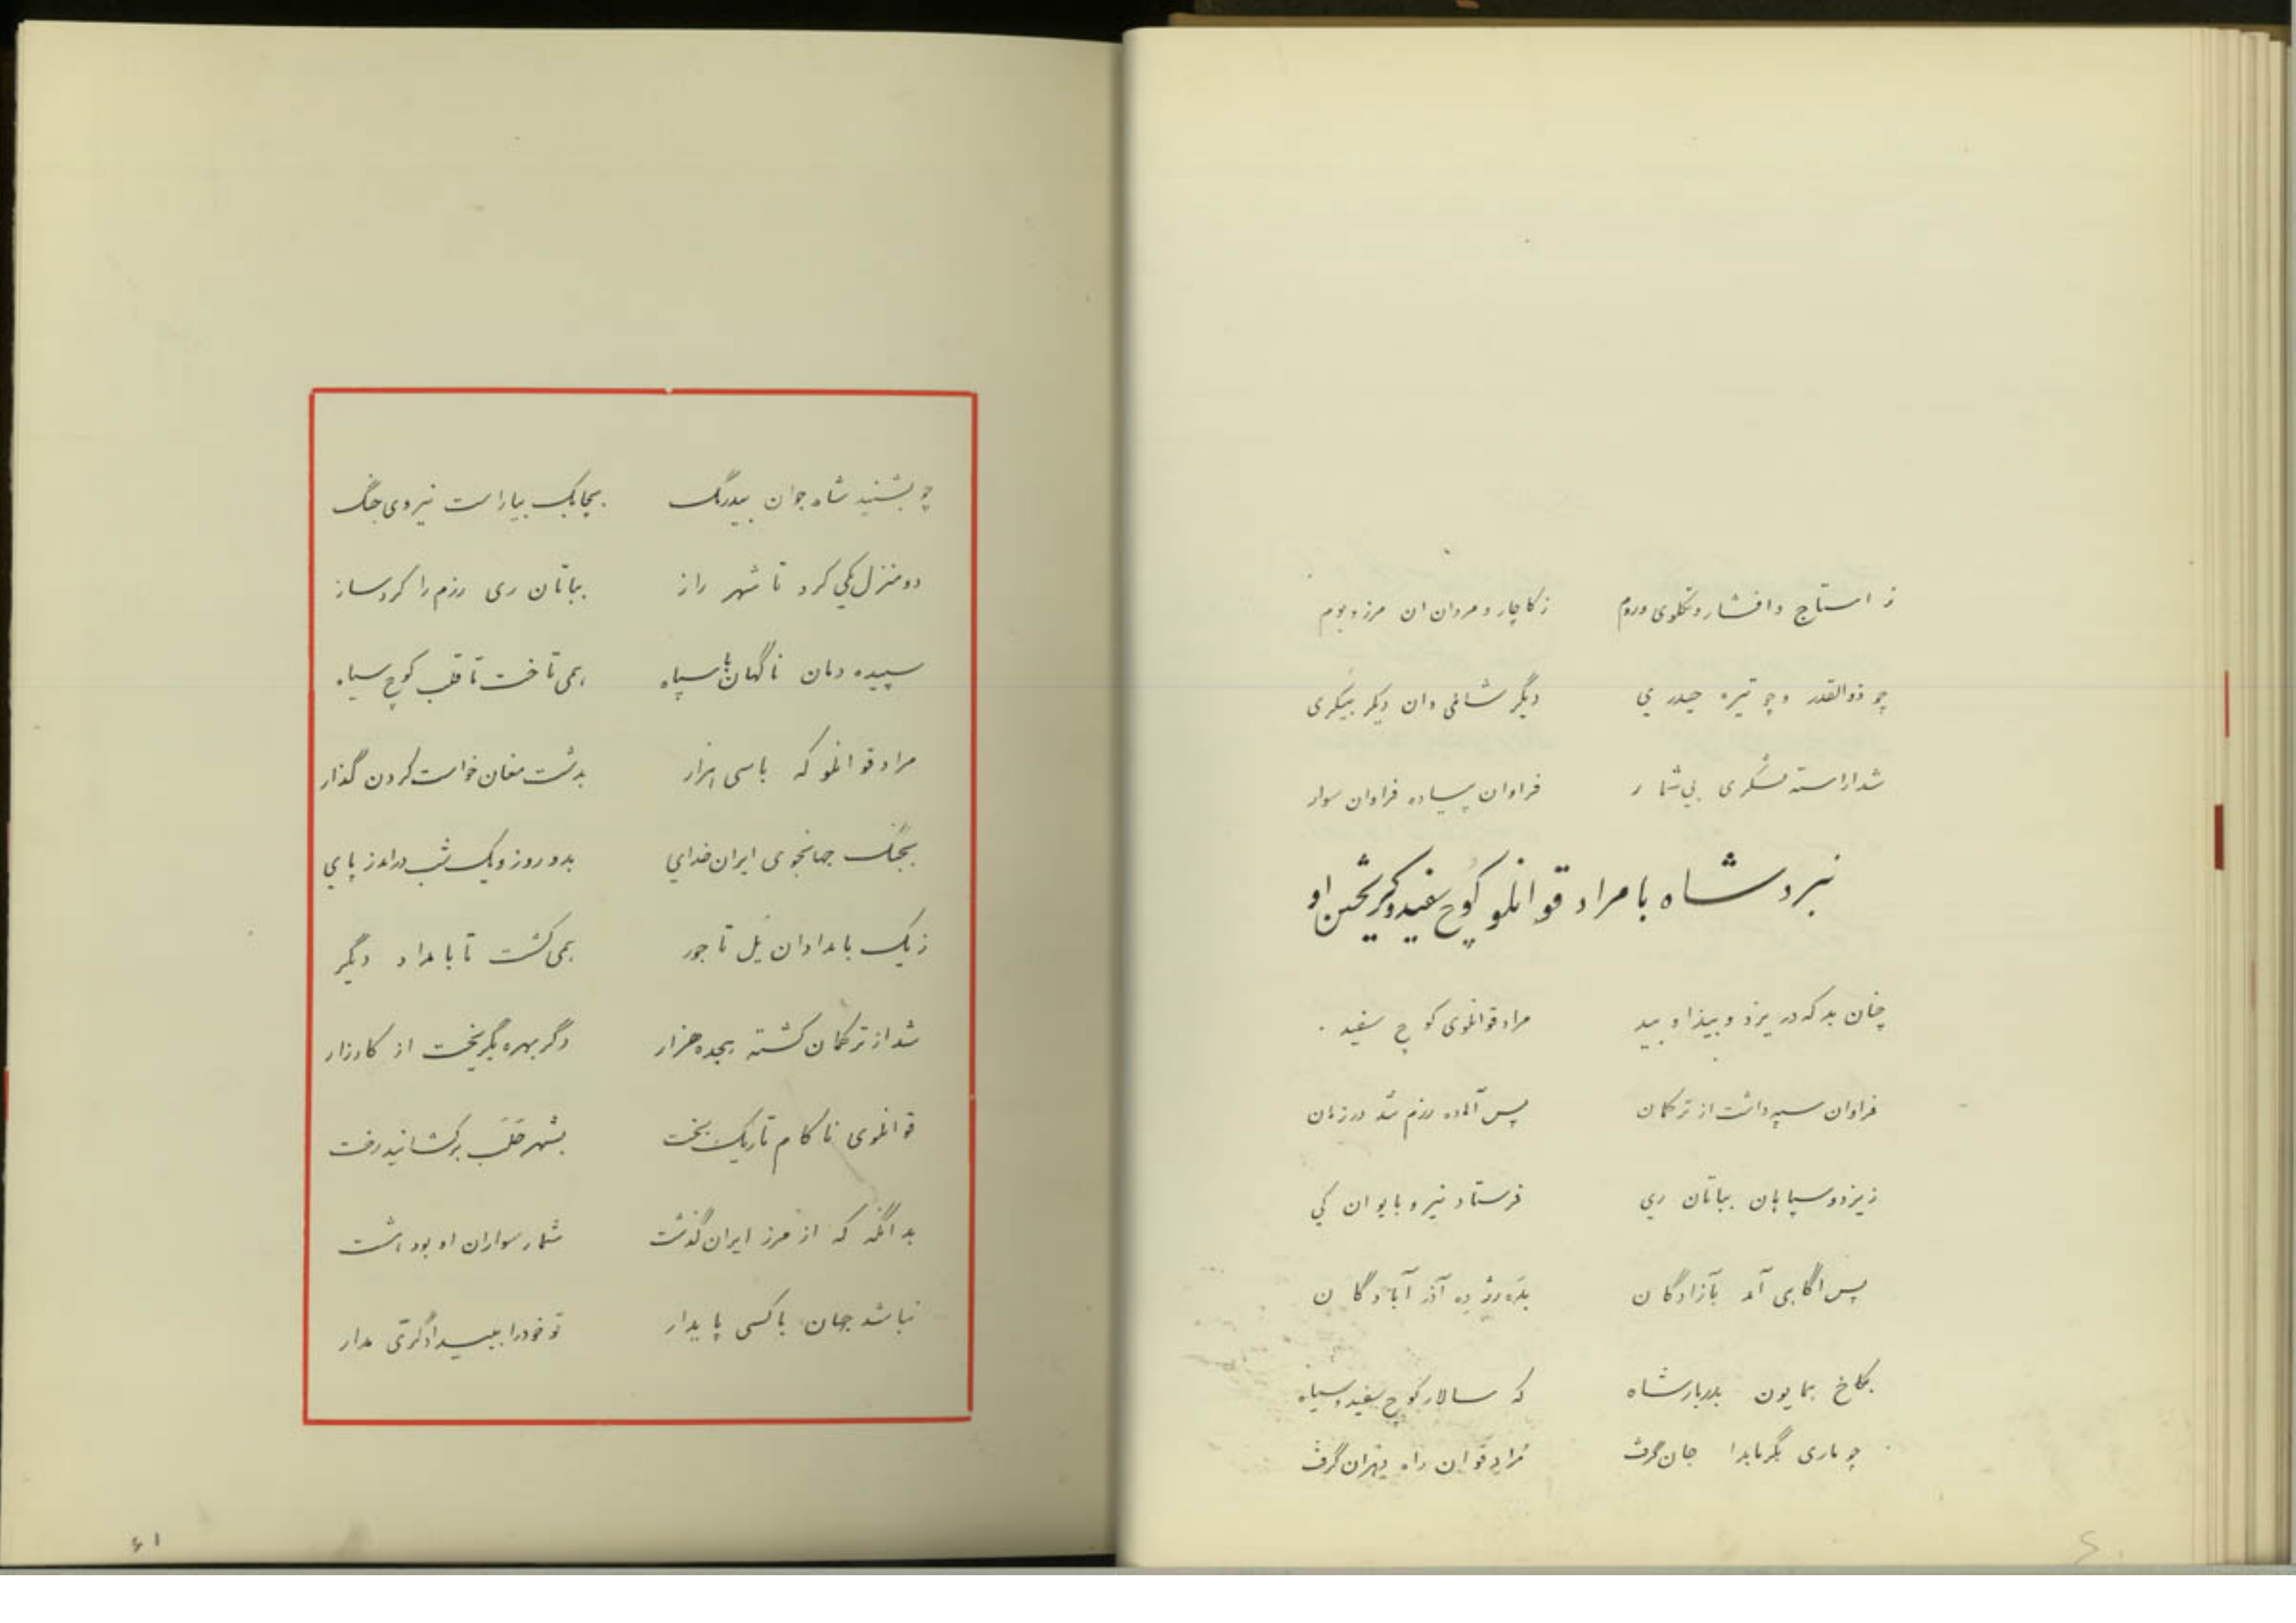 ز استاج و افشار و تکلوی و روم زکاچار و مردان ان مرز و بوم
چو ذوالقدر و چو تیره حیدری دیگر شاملی وان دیگر بیگری
شد اراسته لشگری بی شمار فراوان پیاده فراوان سوار
نبرد شاه با مراد قوانلو کوچ سفید و گریختن او
چنان بد که در یزد و بیداد بید مراد قوانلوی کوچ سفید
فراوان سپه داشت از ترکمان پس آماده رزم شد در زمان
ز یزد و سپاهان بباتان ری فرستاد نیرو بایوان کی
پس اگاهی آمد بآزادگان بدرود آذر آبادگان
بکاخ همایون بدربار شاه که سالار کوچ سفید و سیاه
چو ماری بگرمابدا جان گرفت مراد قواین راه تهران گرفت
چو بشنید شاه جوان بیدرنگ بچابک بیاراست نیروی جنگ
دو منزل یکی کرد تا شهر راز بباتان ری رزم را کرد ساز
سپیده دمان ناگهان با سپاه همی تاخت تا قلب کوچ سیاه
مراد قوانلو که با سی هزار بدشت مغان خواست کردن گذار
بجنگ جهانجوی ایران خدای بدو روز و یک شب درامد ز پای
ز یک بامدادان یل تاجور همی کشت تا بامداد دیگر
شد از ترکمان کشته هیجده هزار دگر بهره بگریخت از کارزار
قوانلوی ناکام تاریک بخت بشهر حلب برکشانید رخت
بدانگه که از مرز ایران گذشت شمار سواران او بود هشت
نباشد جهان با کسی پایدار تو خود را ببیدادگری مدار
۶۱